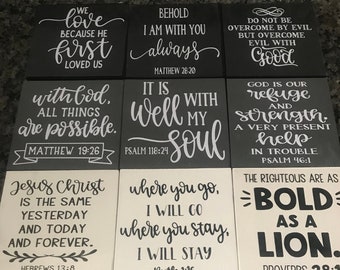 WE
love
BECAUSE HE
first
LOVED US
BEHOLD
I AM WITH YOU
always
MATTHEW 28:20
DO NOT BE
OVERCOME BY EVIL
BUT OVERCOME
EVIL WITH
Good
with God,
ALL THINGS
are possible.
MATTHEW 19:26
IT IS
well WITH
MY
Soul
PSALM 118:24
GOD IS OUR
refuge
AND
strength,
A VERY PRESENT
help
IN TROUBLE
PSALM 46:1
Jesus Christ
IS THE SAME
YESTERDAY
AND TODAY
AND FOREVER.
HEBREWS 13:8
where you go,
I WILL GO
where you stay,
I WILL STAY
THE RIGHTEOUS ARE AS
BOLD
AS A
LION.
PROVERBS 28:1